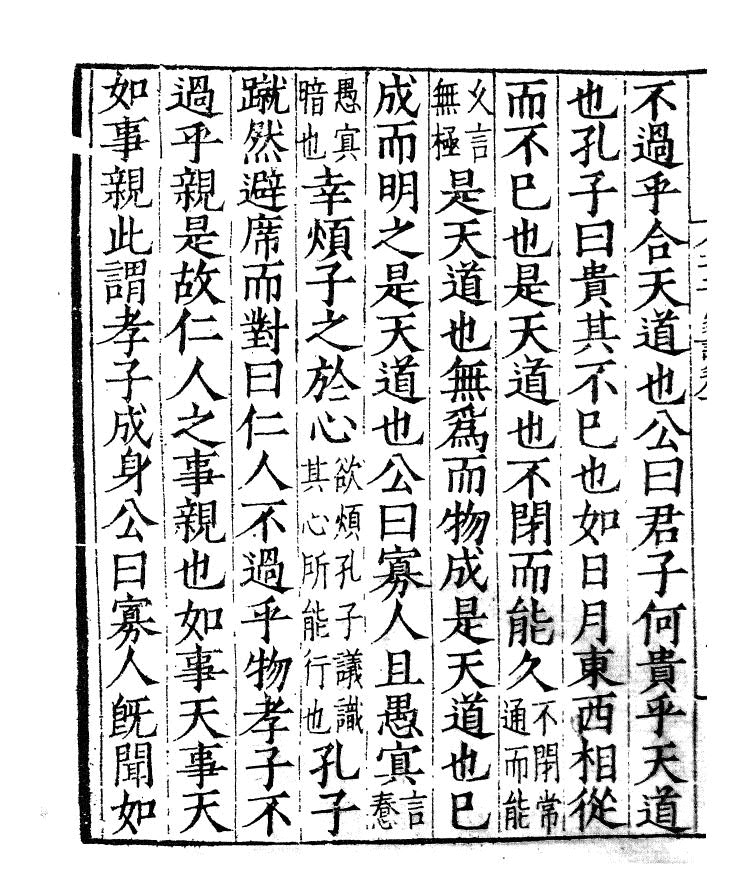 不過乎合天道也公曰君子何貴乎天道
也孔子曰貴其不巳也如日月東西相從
而不巳也是天道也不閉而能久不閉常通而能
久言無極是天道也無爲而物成是天道也巳
成而明之是天道也公曰寡人且愚㝠言惷
愚㝠暗也幸煩子之於心欲煩孔子議識其心所能行也孔子
蹴然避席而對曰仁人不過乎物孝子不
過乎親是故仁人之事親也如事天事天
如事親此謂孝子成身公曰寡人旣聞如